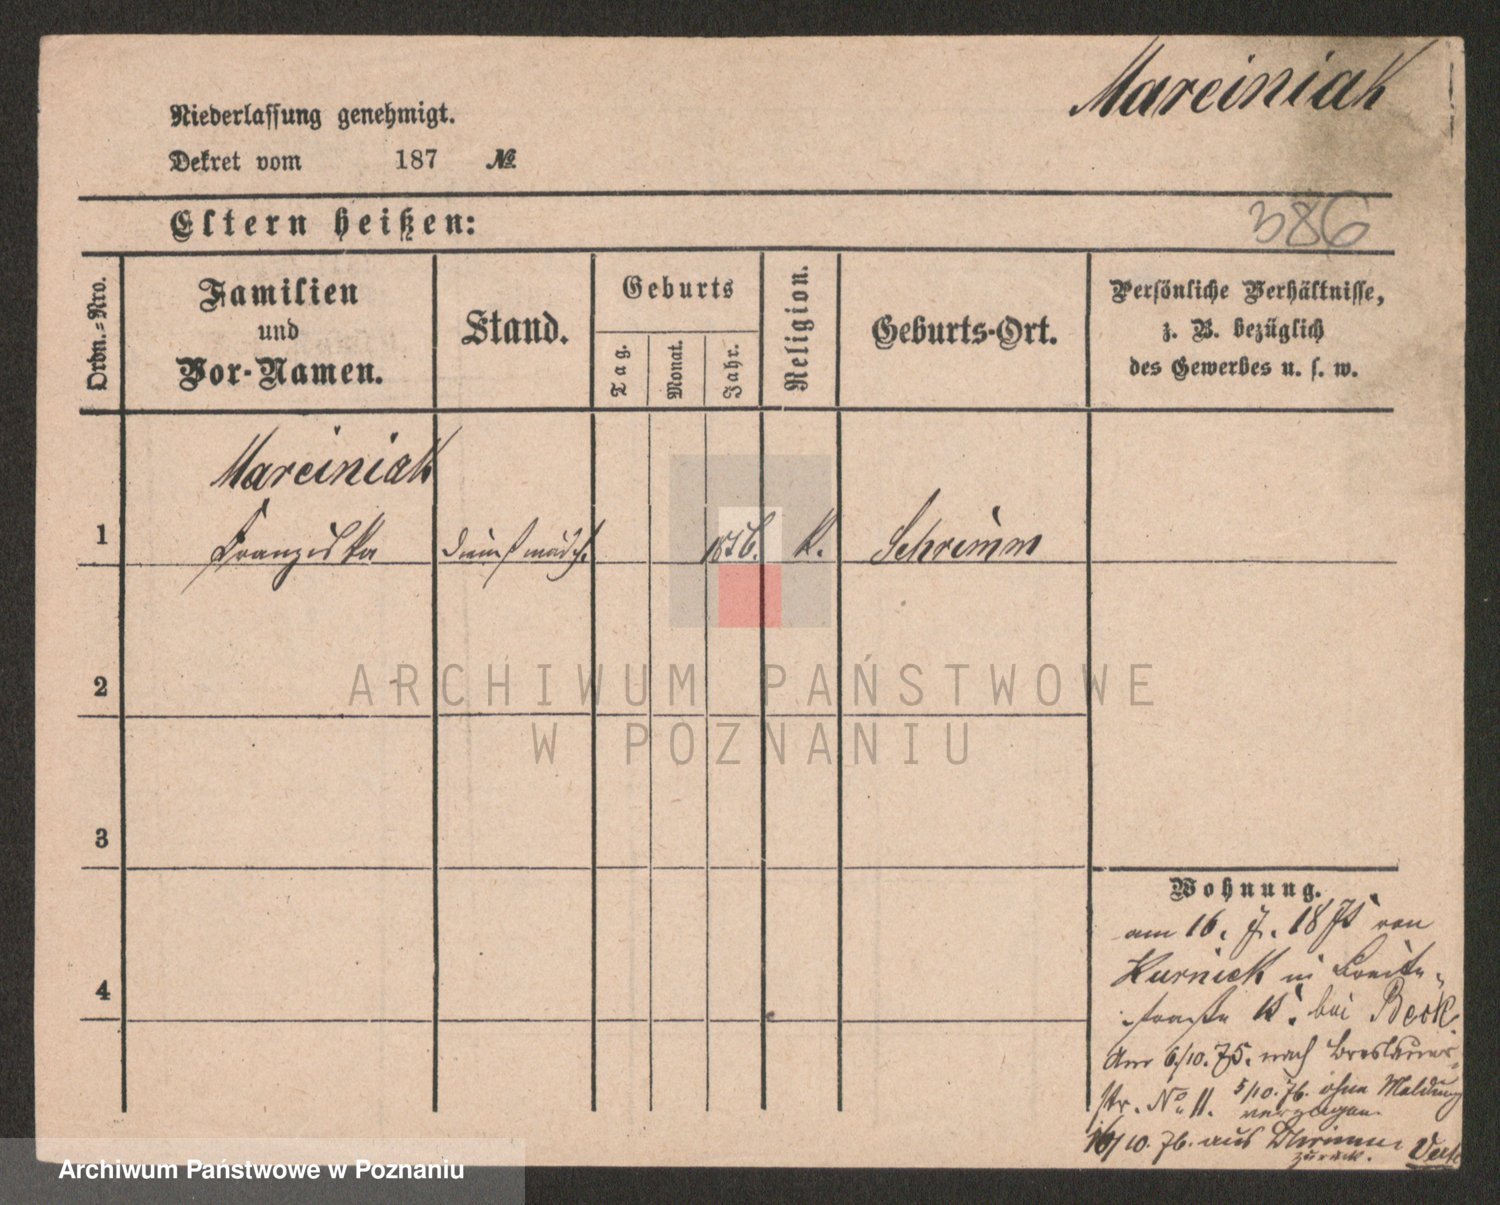 Marciniak
Niederlassung genehmigt.
Dekret vom 187 №
386
Eltern heißen:
Ordn.=Nro.
Familien
und
Vor-Namen.
Stand.
Geburts
Tag.
Monat.
Jahr.
Religion.
Geburts-Ort.
Persönliche Verhältnisse,
z. B. bezüglich
des Gewerbes u. s. w.
Marciniak
1 Franziska Dienstmädch. 1856. K. Schrimm
2
3
4
Wohnung.
am 16. 7. 1875 von
Kurnick in Breite-
straße 15. bei Beck.
Am 6/10. 75. nach Breslauer-
str. No 11. 5/10. 76. ohne Meldung
verzogen.
16/10. 76. aus Schrimm
zurück.
ARCHIWUM PAŃSTWOWE
W POZNANIU
Archiwum Państwowe w Poznaniu